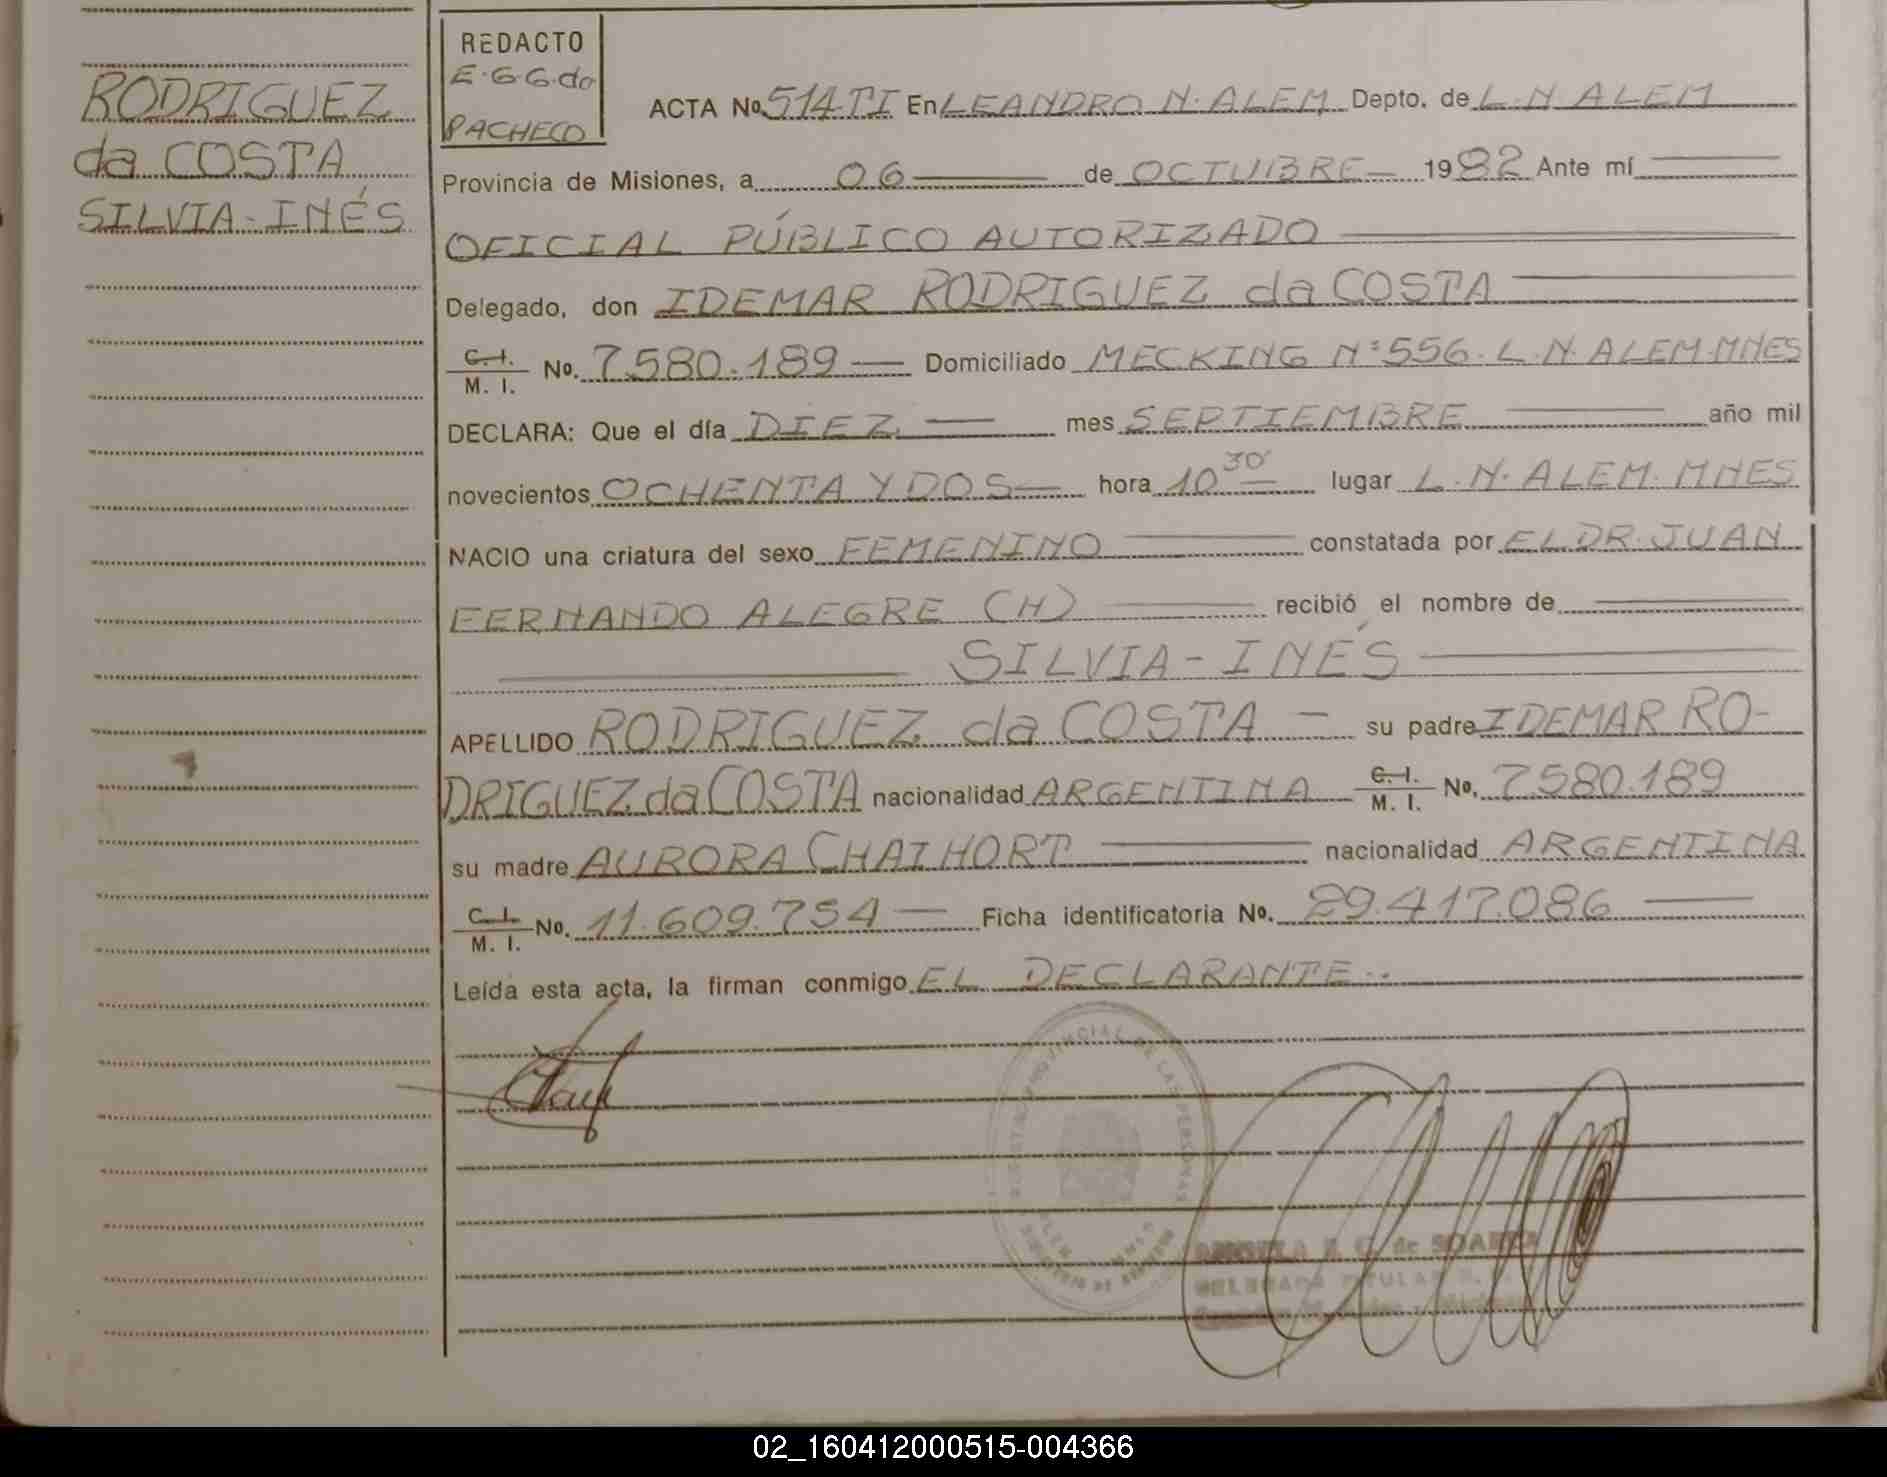 RODRIGUEZ
da COSTA
SILVIA-INÉS
REDACTO
E.G.G.do
PACHECO
ACTA No. 514.TI En LEANDRO N. ALEM Depto. de L.N ALEM
Provincia de Misiones, a 06 de OCTUBRE 1982 Ante mí
OFICIAL PÚBLICO AUTORIZADO
Delegado, don IDEMAR RODRIGUEZ da COSTA
C. I.
M. I. No. 7.580.189 Domiciliado MECKING Nº556. L.N. ALEM.MNES
DECLARA: Que el día DIEZ mes SEPTIEMBRE año mil
novecientos OCHENTA Y DOS hora 10 30' lugar L.N. ALEM. MNES
NACIO una criatura del sexo FEMENINO constatada por EL DR. JUAN
FERNANDO ALEGRE (H) recibió el nombre de
SILVIA-INÉS
APELLIDO RODRIGUEZ da COSTA su padre IDEMAR RO-
DRIGUEZ da COSTA nacionalidad ARGENTINA C. I. M. I. No. 7.580.189
su madre AURORA CHAIHORT nacionalidad ARGENTINA
C. I.
M. I. No. 11.609.754 Ficha identificatoria No. 29.417.086
Leída esta acta, la firman conmigo EL DECLARANTE..
PROVINCIAL DE LAS PERSONAS
de SOAREZ
02_160412000515-004366